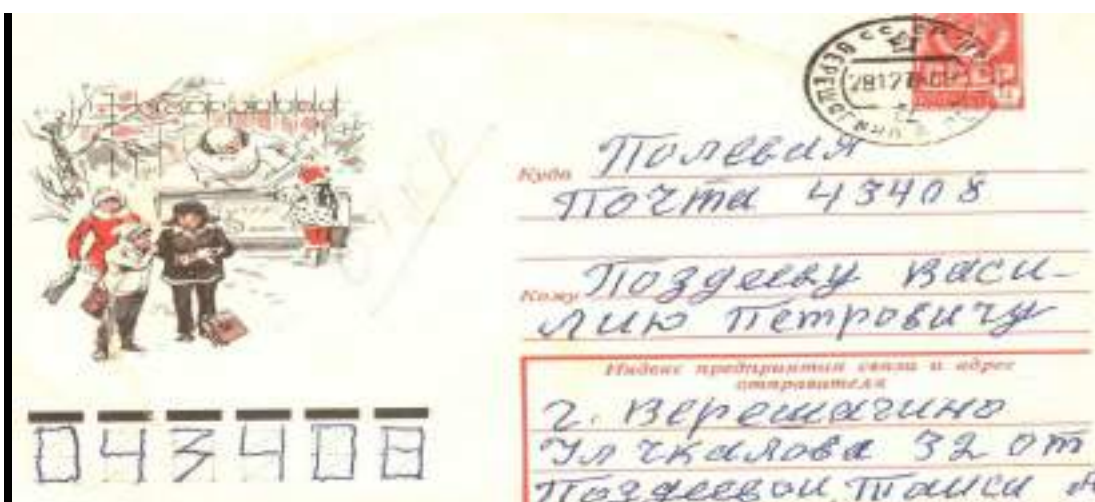 Куда Полевая
Почта 43408
Кому Поздееву Васи-
лию Петровичу
Индекс предприятия связи и адрес
отправителя
г. Верещагино
Ул Чкалова 32 от
Поздеевой Таисии
043408